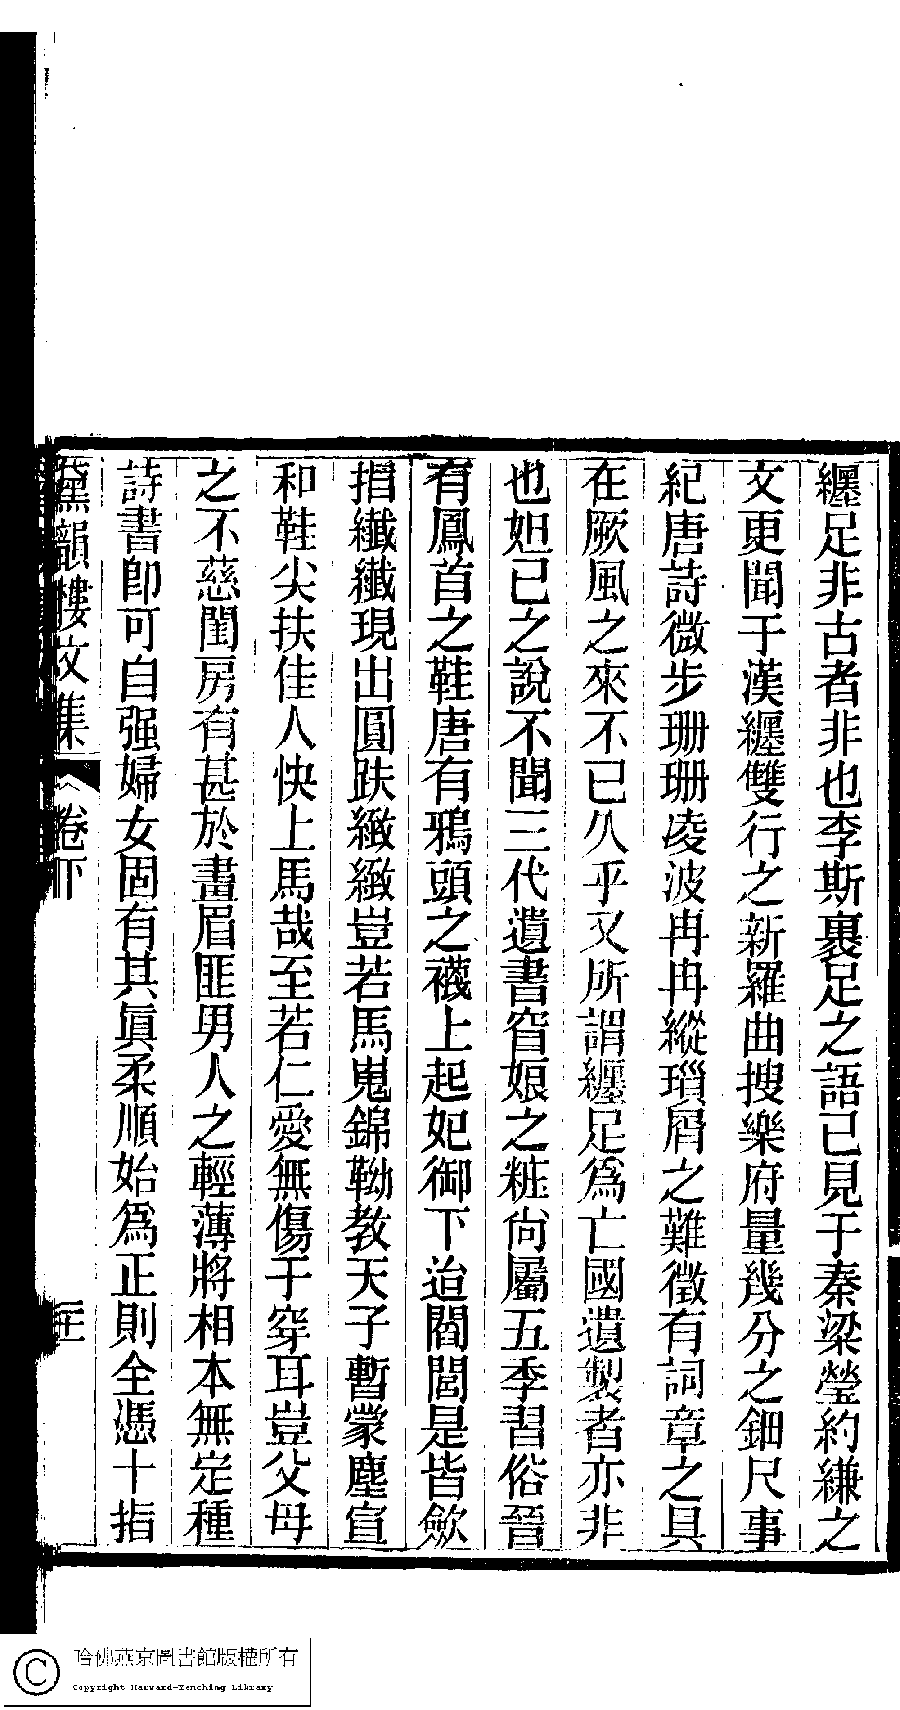 纏足非古者非也李斯裹足之語已見于秦梁瑩約縑之
文更聞于漢纏雙行之新羅曲搜樂府量幾分之鈿尺事
紀唐詩微步珊珊凌波冉冉縱瑣屑之難徵有詞章之具
在厥風之來不已久乎又所謂纏足爲亡國遺製者亦非
也妲己之說不聞三代遺書窅娘之粧尙屬五季習俗晉
有鳳首之鞋唐有鴉頭之襪上起妃御下迨閻閭是皆歛
指纖纖現出圓趺緻緻豈若馬嵬錦靿教天子暫蒙塵宣
和鞋尖扶佳人快上馬哉至若仁愛無傷于穿耳豈父母
之不慈閨房有甚於畫眉匪男人之輕薄將相本無定種
詩書卽可自强婦女固有其眞柔順始爲正則全憑十指
黛韻樓文集 卷下
哈佛燕京圖書館版權所有
Copyright Harvard-Yenching Library